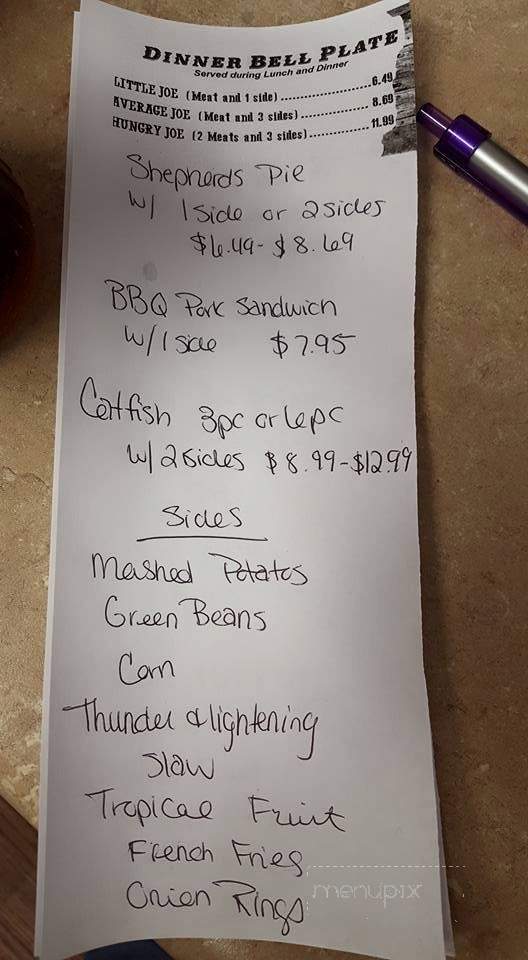 DINNER BELL PLATE
Served during Lunch and Dinner
LITTLE JOE (Meat and 1 side) ........................ 6.49
AVERAGE JOE (Meat and 3 sides) .................. 8.69
HUNGRY JOE (2 Meats and 3 sides) ............... 11.99
Shepherds Pie
w/ 1 side or 2 sides
$6.49 - $8.69
BBQ Pork Sandwich
w/ 1 side $7.95
Catfish 3pc or 6pc
w/ 2 sides $8.99 - $12.99
Sides
Mashed Potatos
Green Beans
Corn
Thunder & lightening
Slaw
Tropical Fruit
French Fries
Onion Rings
menupix